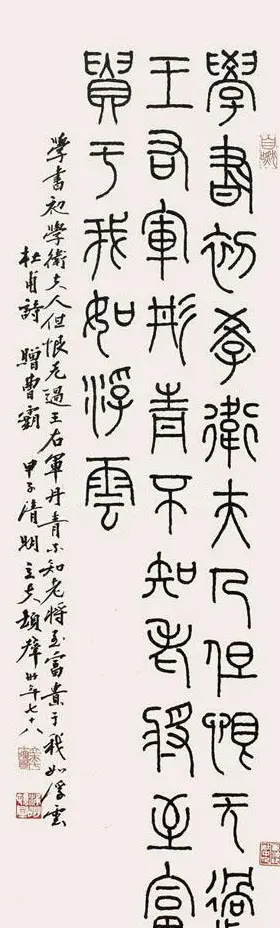 學書初學衛夫人但恨无過
王右軍丹青不知老將至富
貴于我如浮雲
學書初學衛夫人但恨无過王右軍丹青不知老將至富貴于我如浮雲
杜甫詩 贈曹霸 甲子清明 年七十八